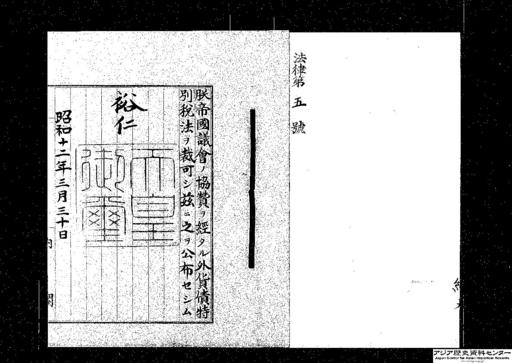 法律第五號
朕帝國議會ノ協贊ヲ經タル外貨債特
別税法ヲ裁可シ茲ニ之ヲ公布セシム
裕仁
天皇御璽
昭和十二年三月三十日
内閣
アジア歴史資料センター
Japan Center for Asian Historical Records